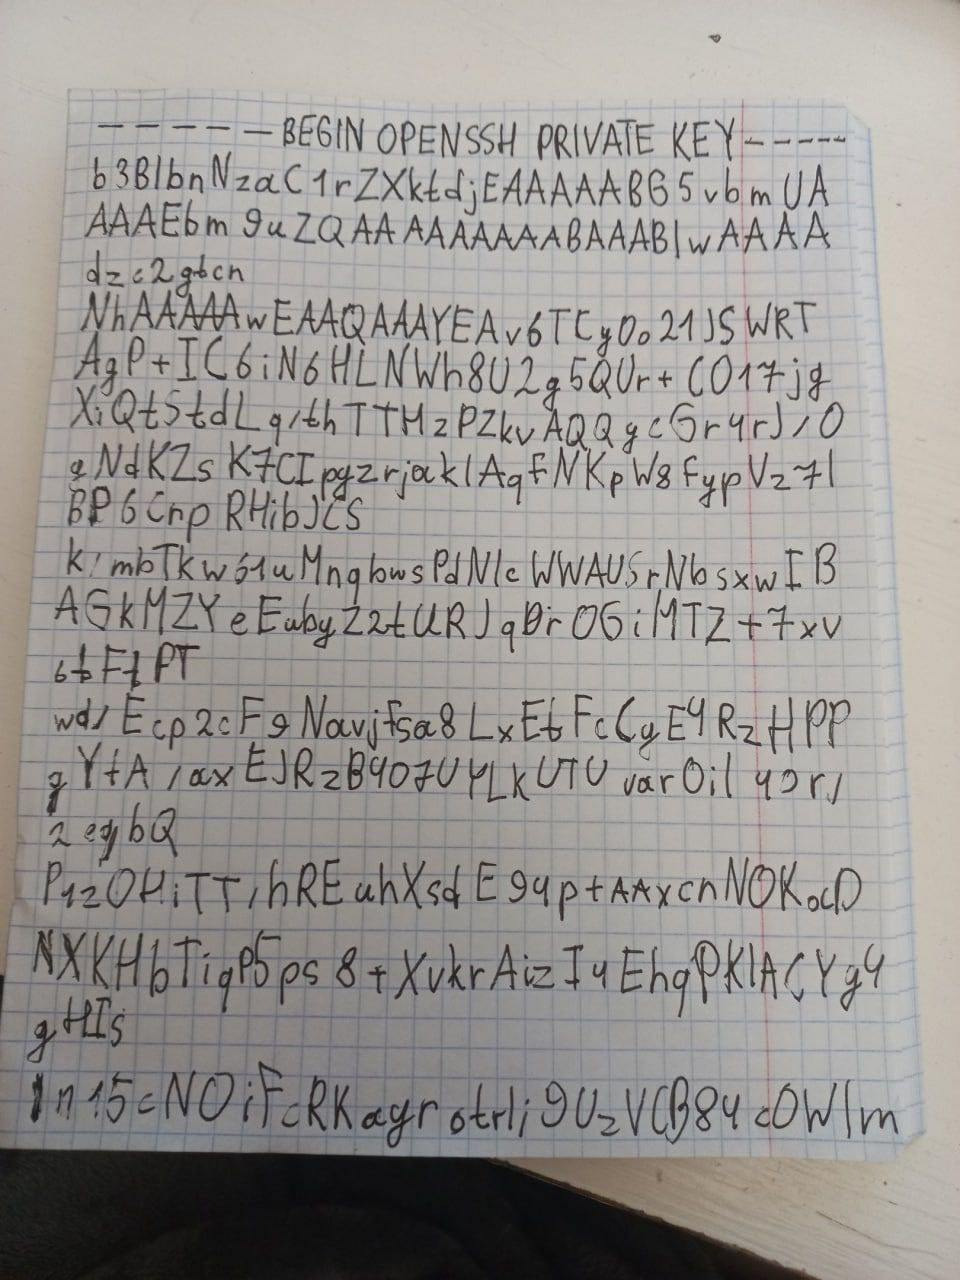 -----BEGIN OPENSSH PRIVATE KEY-----
b3BlbnNzaC1rZXktdjEAAAAABG5vbmUA
AAAEbm9uZQAAAAAAAAABAAABlwAAAA
dzc2gtcn
NhAAAAAwEAAQAAAYEAv6TCyOo21JSWRT
AgP+IC6iN6HLNWh8U2g5QUr+CO17jg
XiQtStdLq/thTTHzPZkvAQQgcGr4rJ/O
gNdKZsK7CIpgzrjaklAqFNKpW8fypVz7l
BP6CnpRHibJCS
k/mbTkw61uMnqbwsPdNlcWWAUSrNbsxwIB
AGkMZYeEubyZ2tURJqDrOGiMTZ+7xv
6tFtPT
wd/Ecp2cF9Navjfsa8LxEtFcCgE4RzHPP
gYtA/axEJRzB4O7UYLkUTUvarOil49r/
2egbQ
P1zOHiTT/hREuhXsdE94p+AAxcnNOKocD
NXKHbTiqP5ps8+XvkrAizI4EhqPKlACYg4
gHIs
1n15cNOiFcRKagrotrli9UzVCB84cOWlm